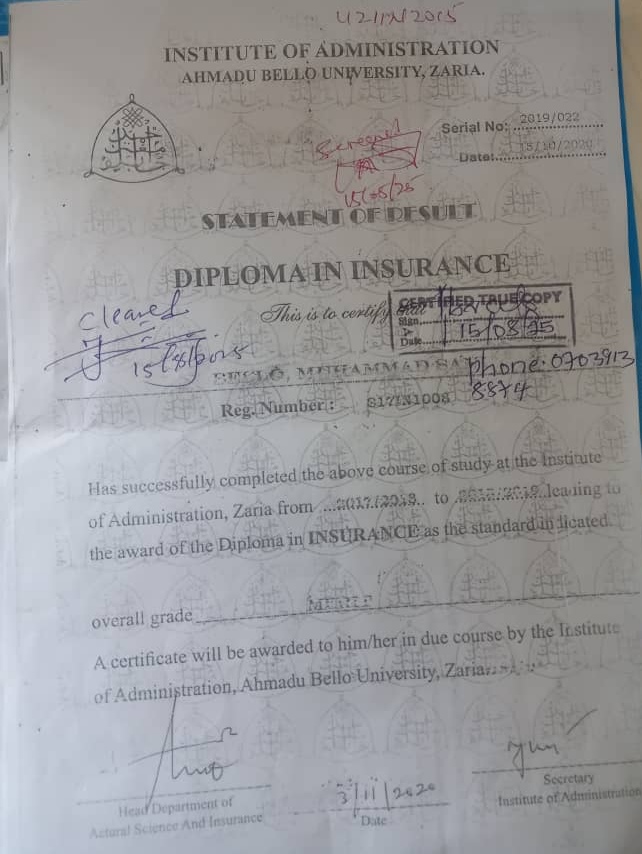 U21IN2015
INSTITUTE OF ADMINISTRATION
AHMADU BELLO UNIVERSITY, ZARIA.
Serial No: 2019/022
Date: 15/10/2020
Screened
15/08/25
STATEMENT OF RESULT
DIPLOMA IN INSURANCE
Cleared
15/08/2025
This is to certify that
CERTIFIED TRUE COPY
Sign
Date 15/08/25
BELLO, MUHAMMAD
phone: 0703913
8874
Reg. Number :
Has successfully completed the above course of study at the Institute
of Administration, Zaria from 2017/2018 to 2018/2019 leading to
the award of the Diploma in INSURANCE as the standard indicated.
overall grade MERIT
A certificate will be awarded to him/her in due course by the Institute
of Administration, Ahmadu Bello University, Zaria.
3/11/2020
Head Department of
Actural Science And Insurance
Date
Secretary
Institute of Administration